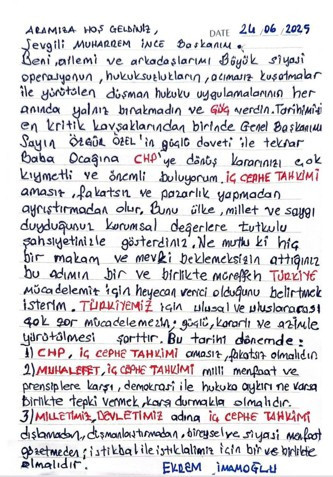 ARAMIZA HOŞ GELDİNİZ,
DATE 24/06/2025
Sevgili MUHARREM İNCE Başkanım.
Beni, ailemi ve arkadaşlarımı Büyük siyasi
operasyonun, hukuksuzlukların, acımasız kuşatmalar
ile yürütülen düşman hukuku uygulamalarının her
anında yalnız bırakmadın ve GÜÇ verdin. Tarihimizin
en kritik kavşaklarından birinde Genel Başkanımız
Sayın ÖZGÜR ÖZEL'in güçlü daveti ile tekrar
Baba Ocağına CHP'ye dönüş kararınızı çok
kıymetli ve önemli buluyorum. İÇ CEPHE TAHKİMİ
amasız, fakatsız ve pazarlık yapmadan
ayrıştırmadan olur. Bunu ülke, millet ve saygı
duyduğunuz kurumsal değerlere tutkulu
şahsiyetinizle gösterdiniz. Ne mutlu ki hiç
bir makam ve mevki beklemeksizin attığınız
bu adımın bir ve birlikte müreffeh TÜRKİYE
mücadelemiz için heyecan verici olduğunu belirtmek
isterim. TÜRKİYEMİZ için ulusal ve uluslararası
çok zor mücadelemizin; güçlü, kararlı ve azimle
yürütülmesi şarttır. Bu tarihi dönemde:
1) CHP, İÇ CEPHE TAHKİMİ amasız, fakatsız olmalıdır.
2) MUHALEFET, İÇ CEPHE TAHKİMİ milli menfaat ve
prensiplere karşı, demokrasi ile hukuka aykırı ne varsa
birlikte tepki vermek, karşı durmakla olmalıdır.
3) MİLLETİMİZ, DEVLETİMİZ adına İÇ CEPHE TAHKİMİ
dışlamadan, düşmanlaştırmadan, bireysel ve siyasi menfaat
gözetmeden; istikbal ile istiklalimiz için bir ve birlikte
olmalıdır.
EKREM İMAMOĞLU